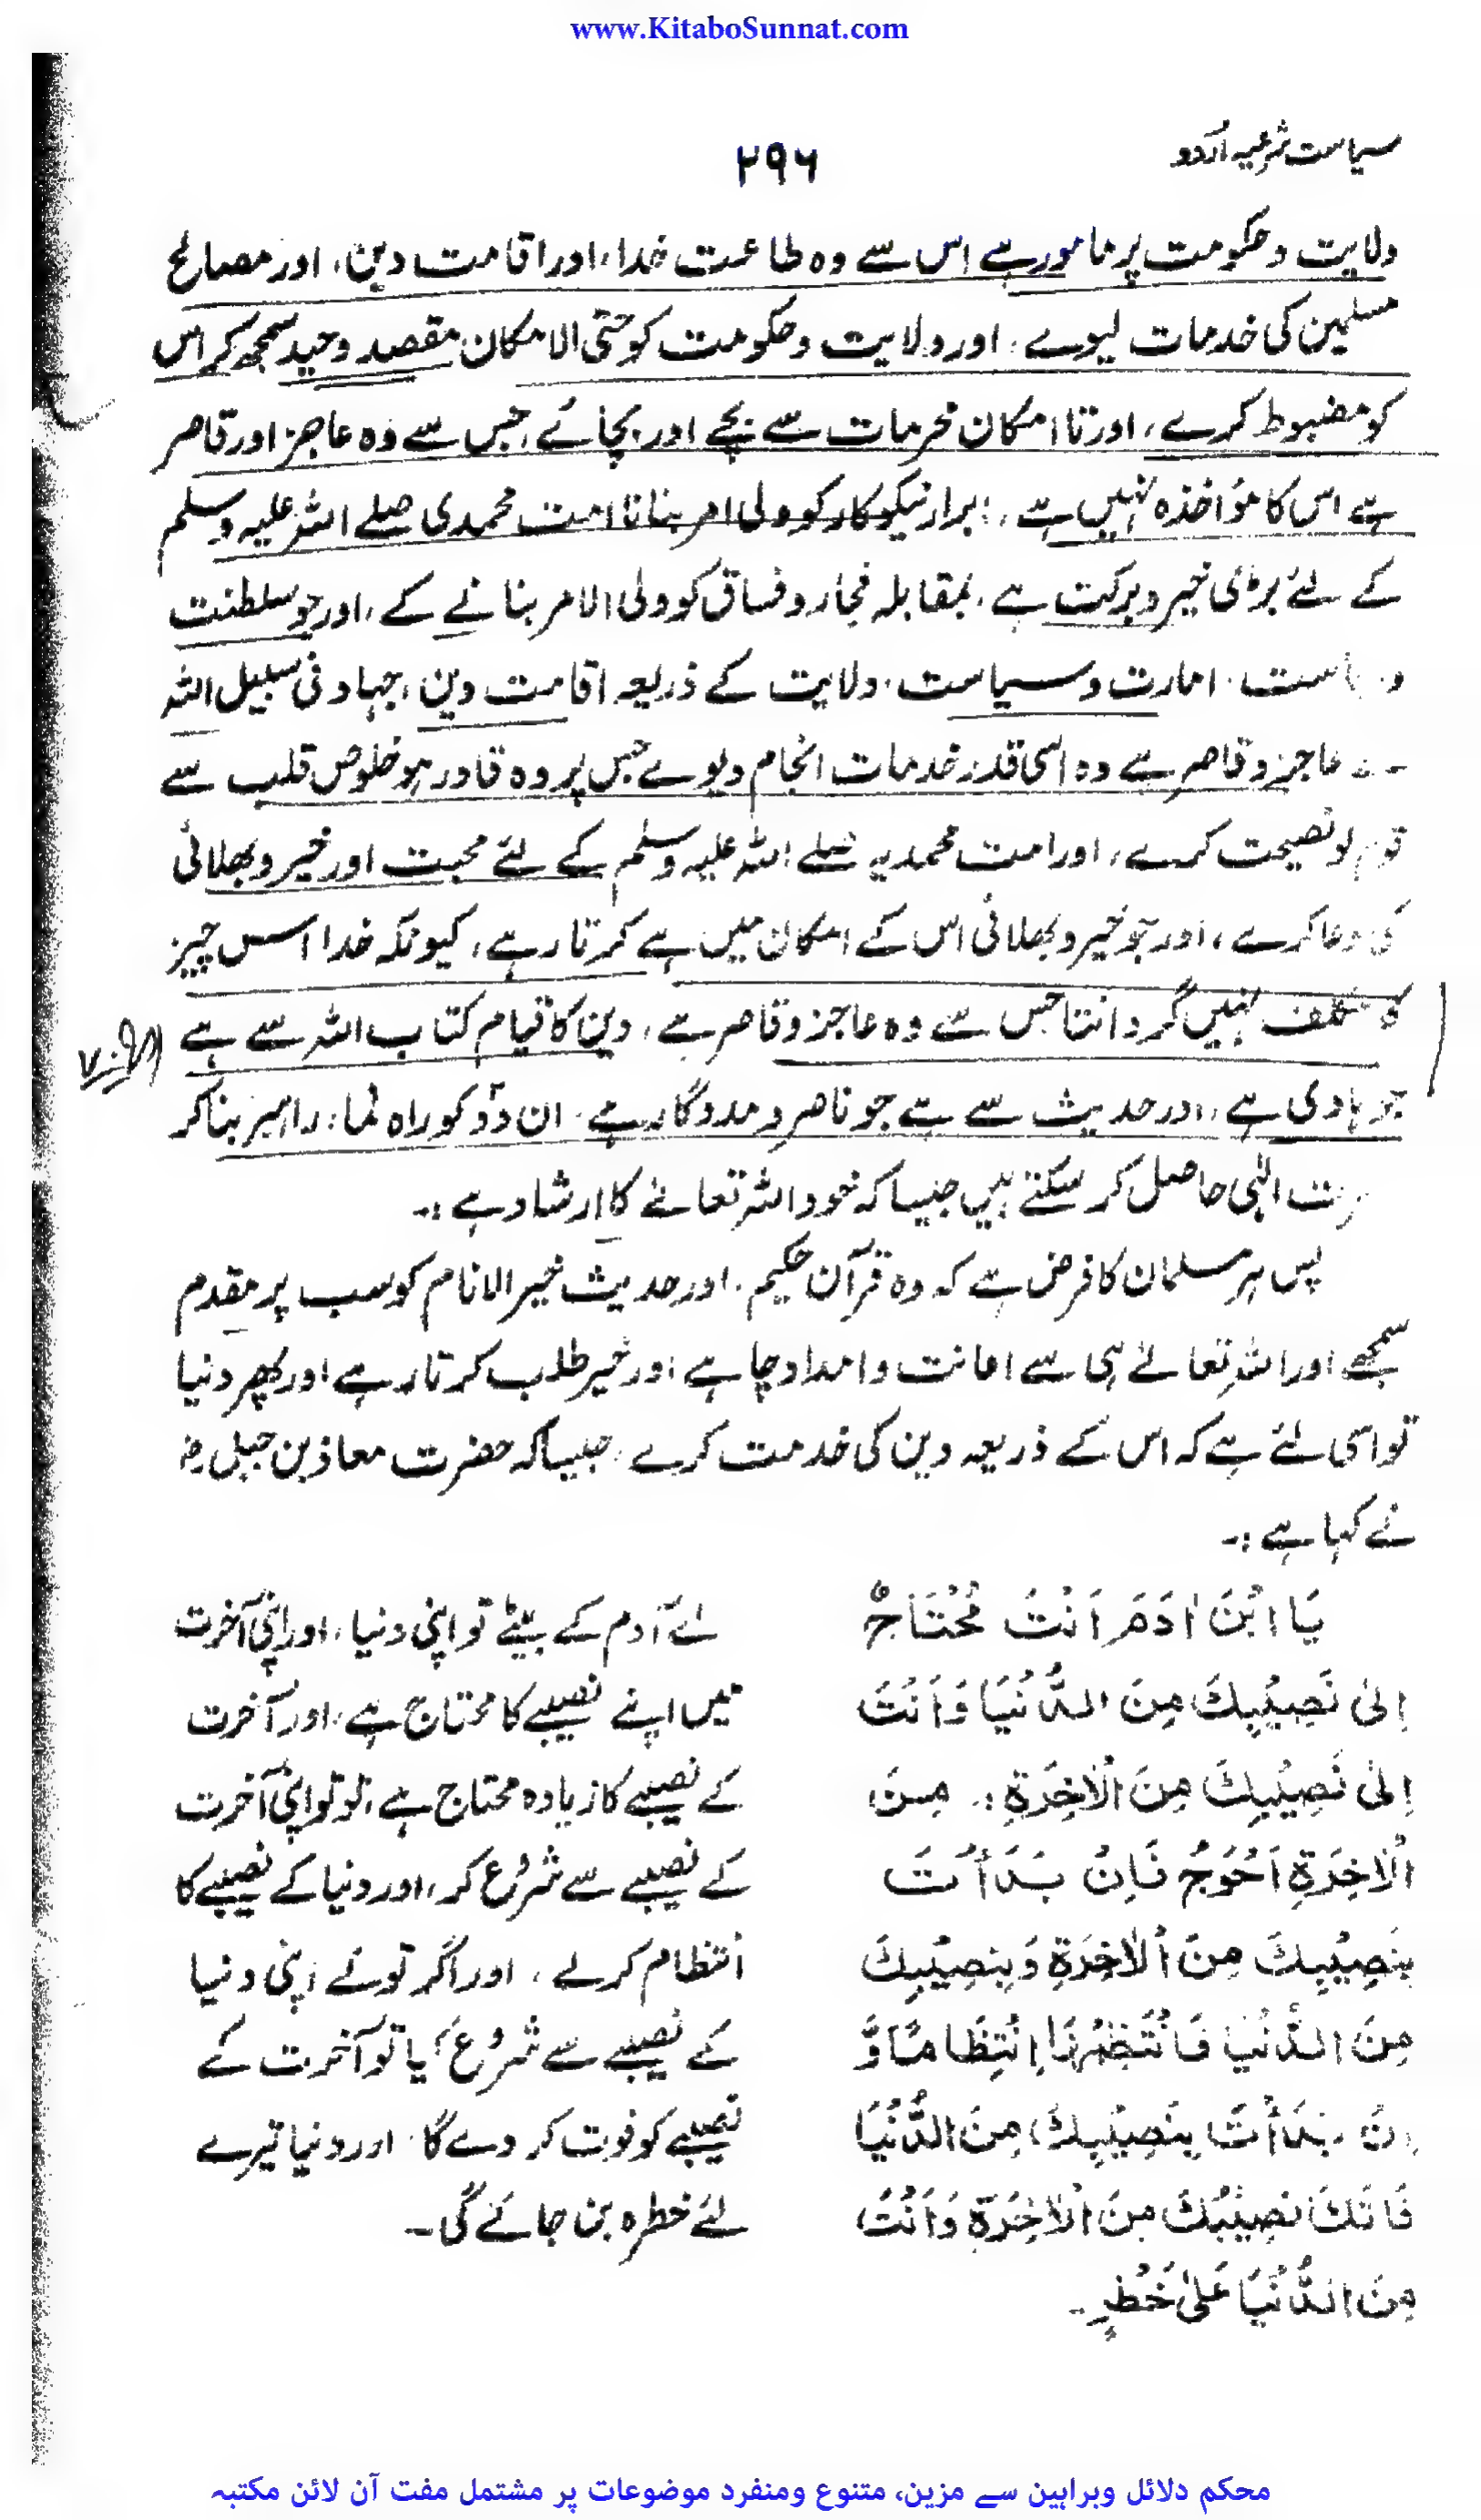 www.KitaboSunnat.com
سیاست شرعیہ اُردو
۲۹۶
ولایت وحکومت پر مامور ہے اس سے وہ طاعت خدا، اور اقامت دین، اور مصالح
مسلمین کی خدمات لیوے، اور ولایت وحکومت کو حتی الامکان مقصد وحید سمجھ کر اس
کو مضبوط کرے، اور تا امکان محرمات سے بچے اور بچائے، جس سے وہ عاجز اور قاصر
ہے اس کا مؤاخذہ نہیں ہے، ابرار نیکوکار کو ولی امر بنانا امت محمدی صلے اللہ علیہ وسلم
کے لئے بڑی خیر و برکت ہے، بمقابلہ فجار و فساق کو ولی الامر بنانے کے، اور جو سلطنت
و است، امارت وسیاست، ولایت کے ذریعہ اقامت دین، جہاد فی سبیل اللہ
سے عاجز و قاصر ہے وہ اسی قدر خدمات انجام دیوے جس پر وہ قادر ہو خلوص قلب سے
قوم کو نصیحت کرے، اور امت محمدیہ صلے اللہ علیہ وسلم کے لئے محبت اور خیر و بھلائی
کی دعا کرے، اور جو خیر و بھلائی اس کے امکان میں ہے کرتا رہے، کیونکہ خدا اسس چیز
کا مکلف نہیں گردانتا جس سے وہ عاجز و قاصر ہے، دین کا قیام کتاب اللہ سے ہے
جو ہادی ہے، اور حدیث سے ہے جو ناصر و مددگار ہے، ان دو کو راہ نما، راہبر بناکر
الٰہی حاصل کر سکتے ہیں جیسا کہ خود اللہ تعالےٰ کا ارشاد ہے :۔
پس ہر مسلمان کا فرض ہے کہ وہ قرآن حکیم، اور حدیث خیر الانام کو سب پر مقدم
سمجھے اور اللہ تعالےٰ ہی سے اعانت وامداد چاہے اور خیر طلب کرتا رہے اور پھر دنیا
تو اسی لئے ہے کہ اس کے ذریعہ دین کی خدمت کرے، جیسا کہ حضرت معاذ بن جبل رض
نے کہا ہے :۔
یَا ابْنَ اٰدَمَ اَنْتَ مُحْتَاجٌ
اِلیٰ نَصِیْبِکَ مِنَ الدُّنْیَا وَاَنْتَ
اِلیٰ نَصِیْبِکَ مِنَ الْاٰخِرَةِ :۔ مِنَ
الْاٰخِرَةِ اَحْوَجُ فَاِنْ بَدَاْتَ
بِنَصِیْبِکَ مِنَ الْاٰخِرَةِ وَبِنَصِیْبِکَ
مِنَ الدُّنْیَا فَانْتَظِمْهَا اِنْتِظَامًا وَّ
اِنْ بَدَاْتَ بِنَصِیْبِکَ مِنَ الدُّنْیَا
فَاتَکَ نَصِیْبُکَ مِنَ الْاٰخِرَةِ وَاَنْتَ
مِنَ الدُّنْیَا عَلیٰ خَطْرٍ۔
اے آدم کے بیٹے تو اپنی دنیا، اور اپنی آخرت
میں اپنے نصیبے کا محتاج ہے، اور آخرت
کے نصیبے کا زیادہ محتاج ہے، تو تو اپنی آخرت
کے نصیبے سے شروع کر، اور دنیا کے نصیبے کا
انتظام کرلے، اور اگر تونے اپنی دنیا
کے نصیبے سے شروع کیا تو آخرت کے
نصیبے کو فوت کر دے گا، اور دنیا تیرے
لئے خطرہ بن جائے گی۔
محکم دلائل وبراہین سے مزین، متنوع ومنفرد موضوعات پر مشتمل مفت آن لائن مکتبہ